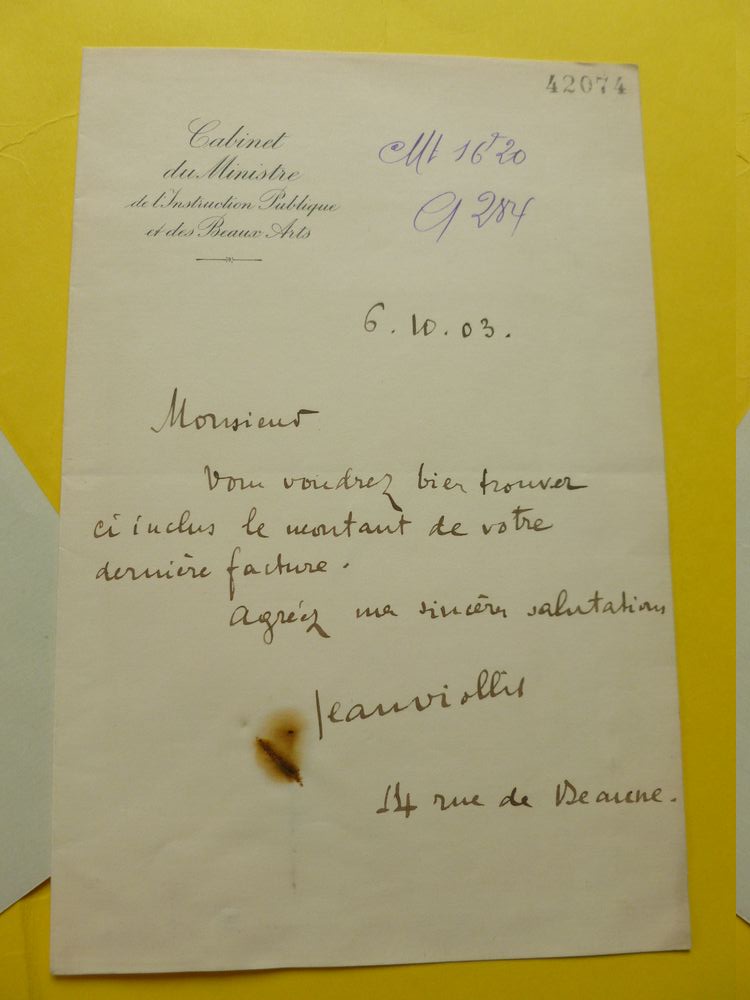 42074
Cabinet
du Ministre
de l'Instruction Publique
et des Beaux Arts
Mt 16f 20
G 284
6.10.03.
Monsieur
Vous voudrez bien trouver
ci inclus le montant de votre
dernière facture.
Agréez mes sincères salutations
Jean Viollis
14 rue de Beaune.